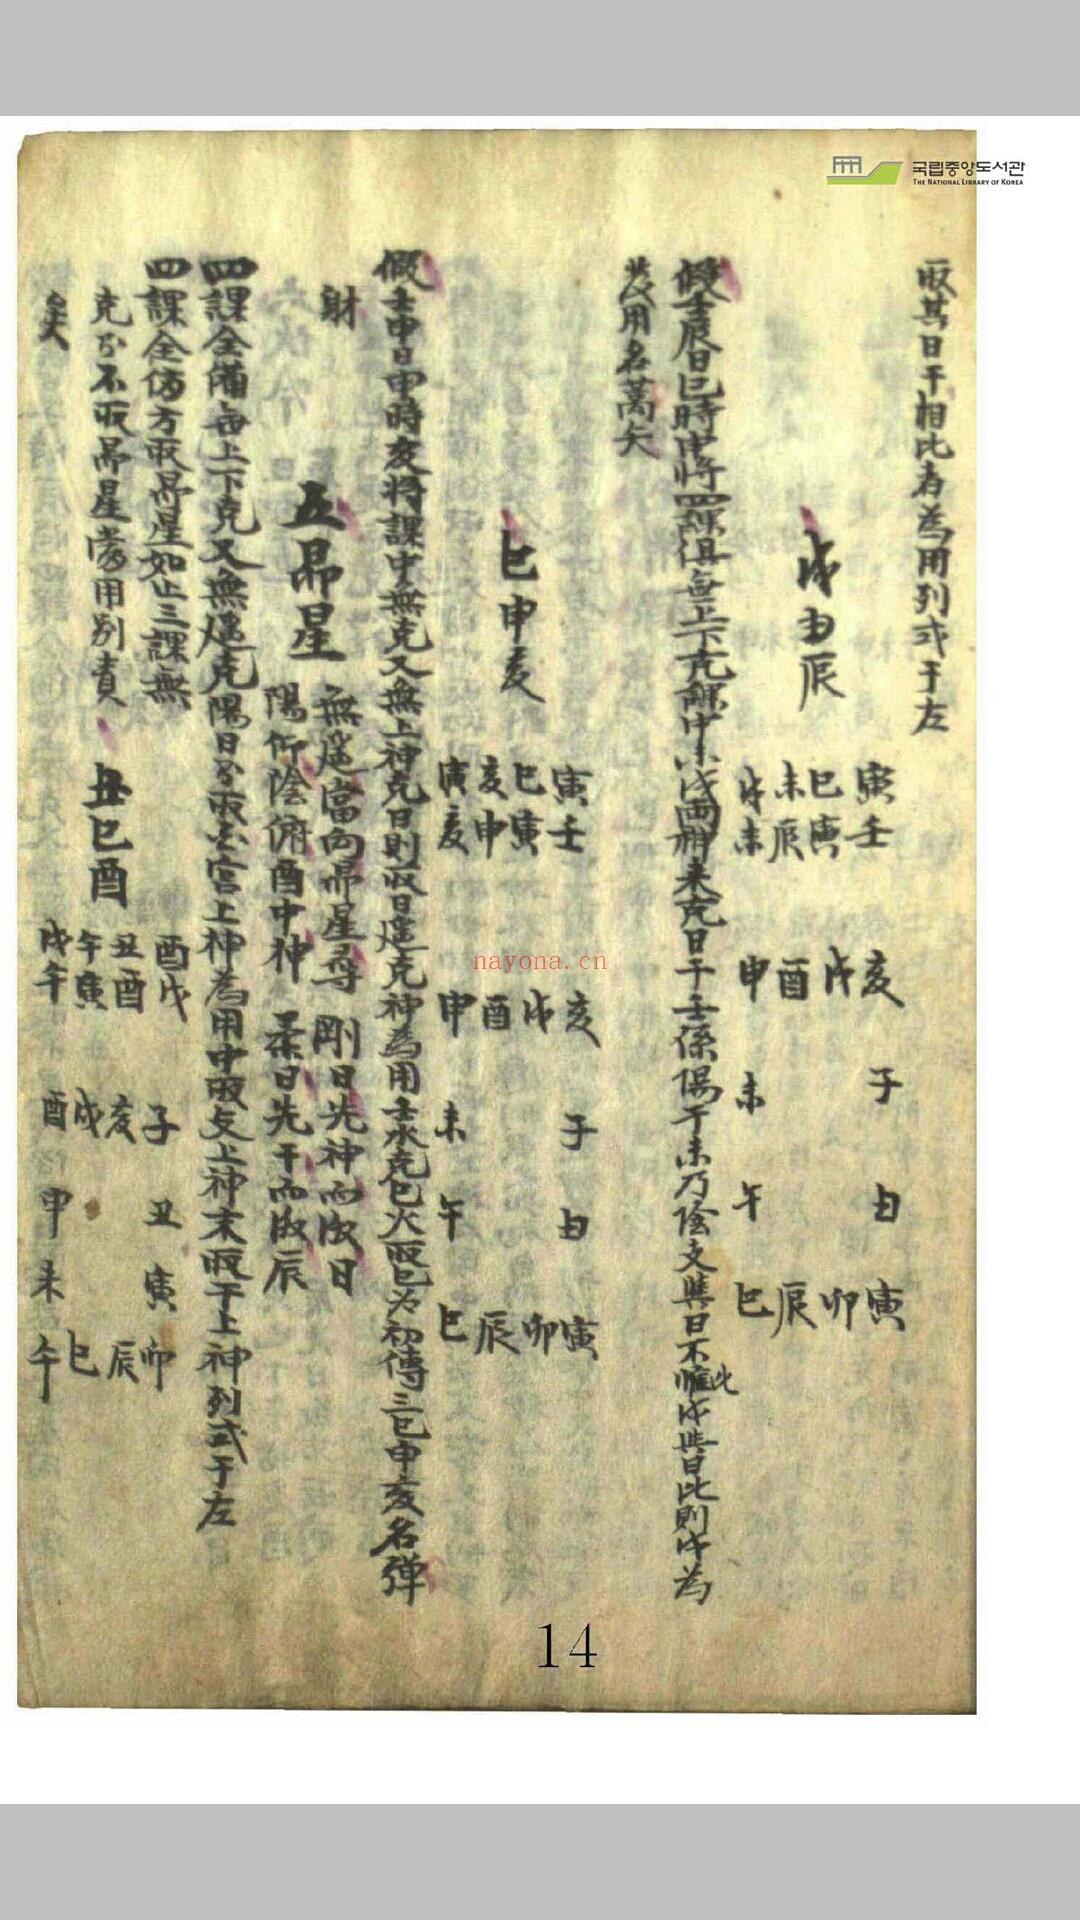 국립중앙도서관
THE NATIONAL LIBRARY OF KOREA
取其日干相比者為用列式于左
戌丑辰
寅巳未戌
壬寅辰未
亥戌酉申
子 未
丑 午
寅卯辰巳
假壬辰日巳時申將四課俱無上下克課中未戌兩神來克日干壬係陽干未乃陰支與日不比惟戌與日比則戌為
發用名蒿矢
巳申亥
寅巳亥寅
壬寅申亥
亥戌酉申
子 未
丑 午
寅卯辰巳
假壬申日申時亥將課中無克又無上神克日則取日遙克神為用壬水克巳火取巳為初傳三巳申亥名弹
射
五昴星
無遙當向昴星尋 剛日先神而後日
陽仰陰俯酉中神 柔日先干而後辰
四課全備無上下克又無遙克陽日分取酉宮上神為用中取支上神末取干上神列式于左
四課全備方取昴星如止三課無
克分不取昴星當用別責
矣
丑巳酉
酉丑午戌
戌酉寅午
子亥戌酉
丑 申
寅 未
卯辰巳午
nayona.cn
14